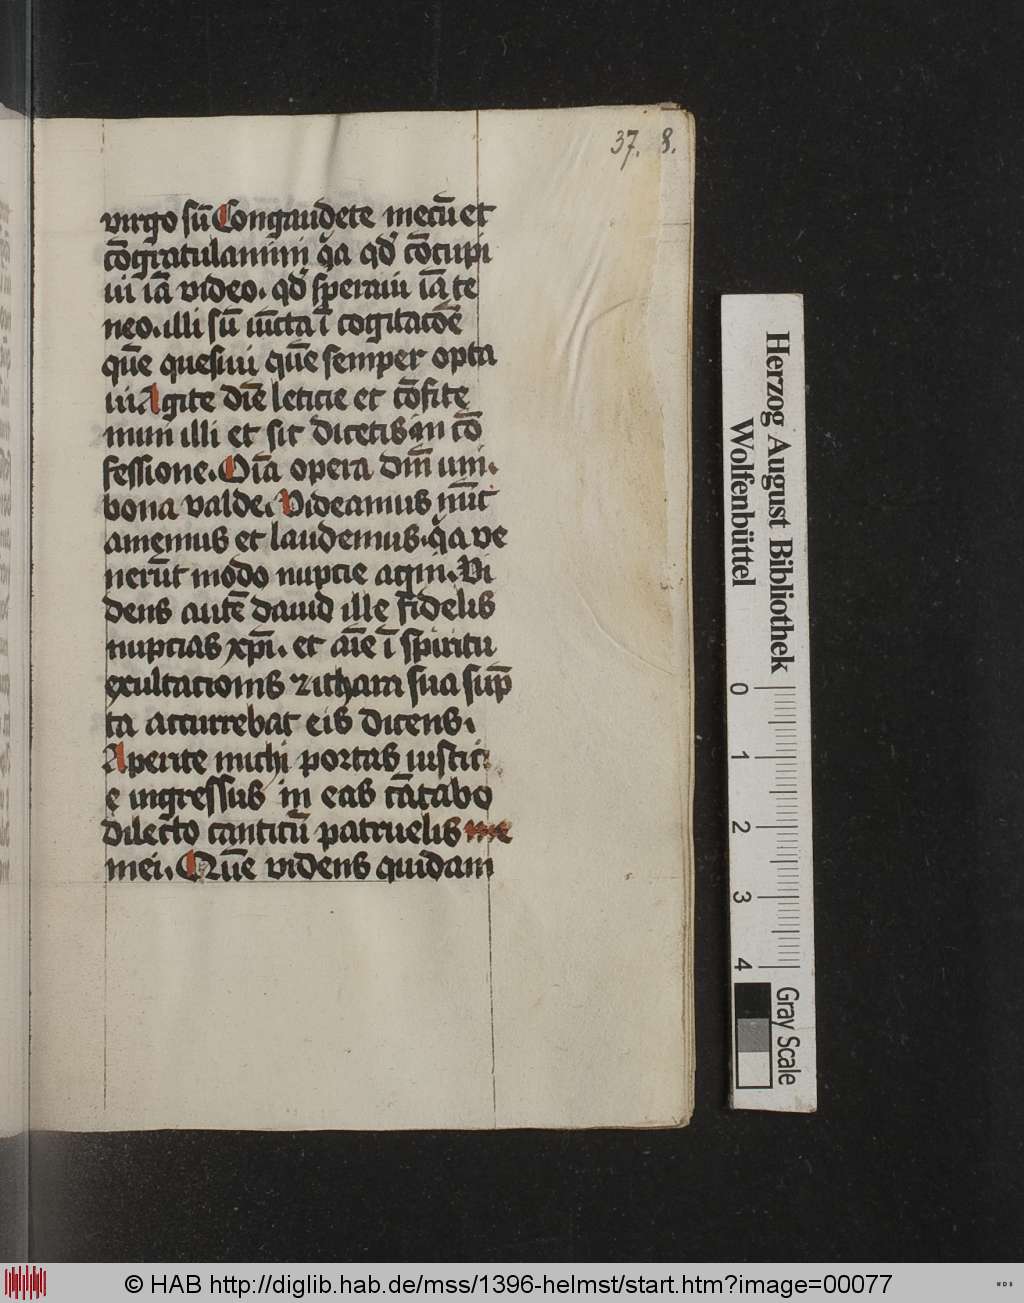 37. 8.
virgo sū Congaudete mecū et
cōgratulamini qͥa qđ cōcupi
ui iā video. qđ speraui iā te
neo. illi sū iūcta ī cogitacōe
quē quesiui quē semper opta
ui Agite diē leticie et cōfite
mini illi et sic dicetis in cō
fessione. Oīa opera dm̄ uni.
bona valde. Videamus nūc
amemus et laudemus. qͥa ve
nerūt modo nupcie agni. Vi
dens autē dauid ille fidelis
nupcias xp̄i. et aīe ī spiritu
exultacionis zithara sua sūp
ta accurrebat eis dicens.
Aperite michi portas iustici
e ingressus in eas cātabo
dilecto canticū patruelis me
mei. Quē videns quidam
Herzog August Bibliothek
Wolfenbüttel
0 1 2 3 4
Gray Scale
© HAB http://diglib.hab.de/mss/1396-helmst/start.htm?image=00077